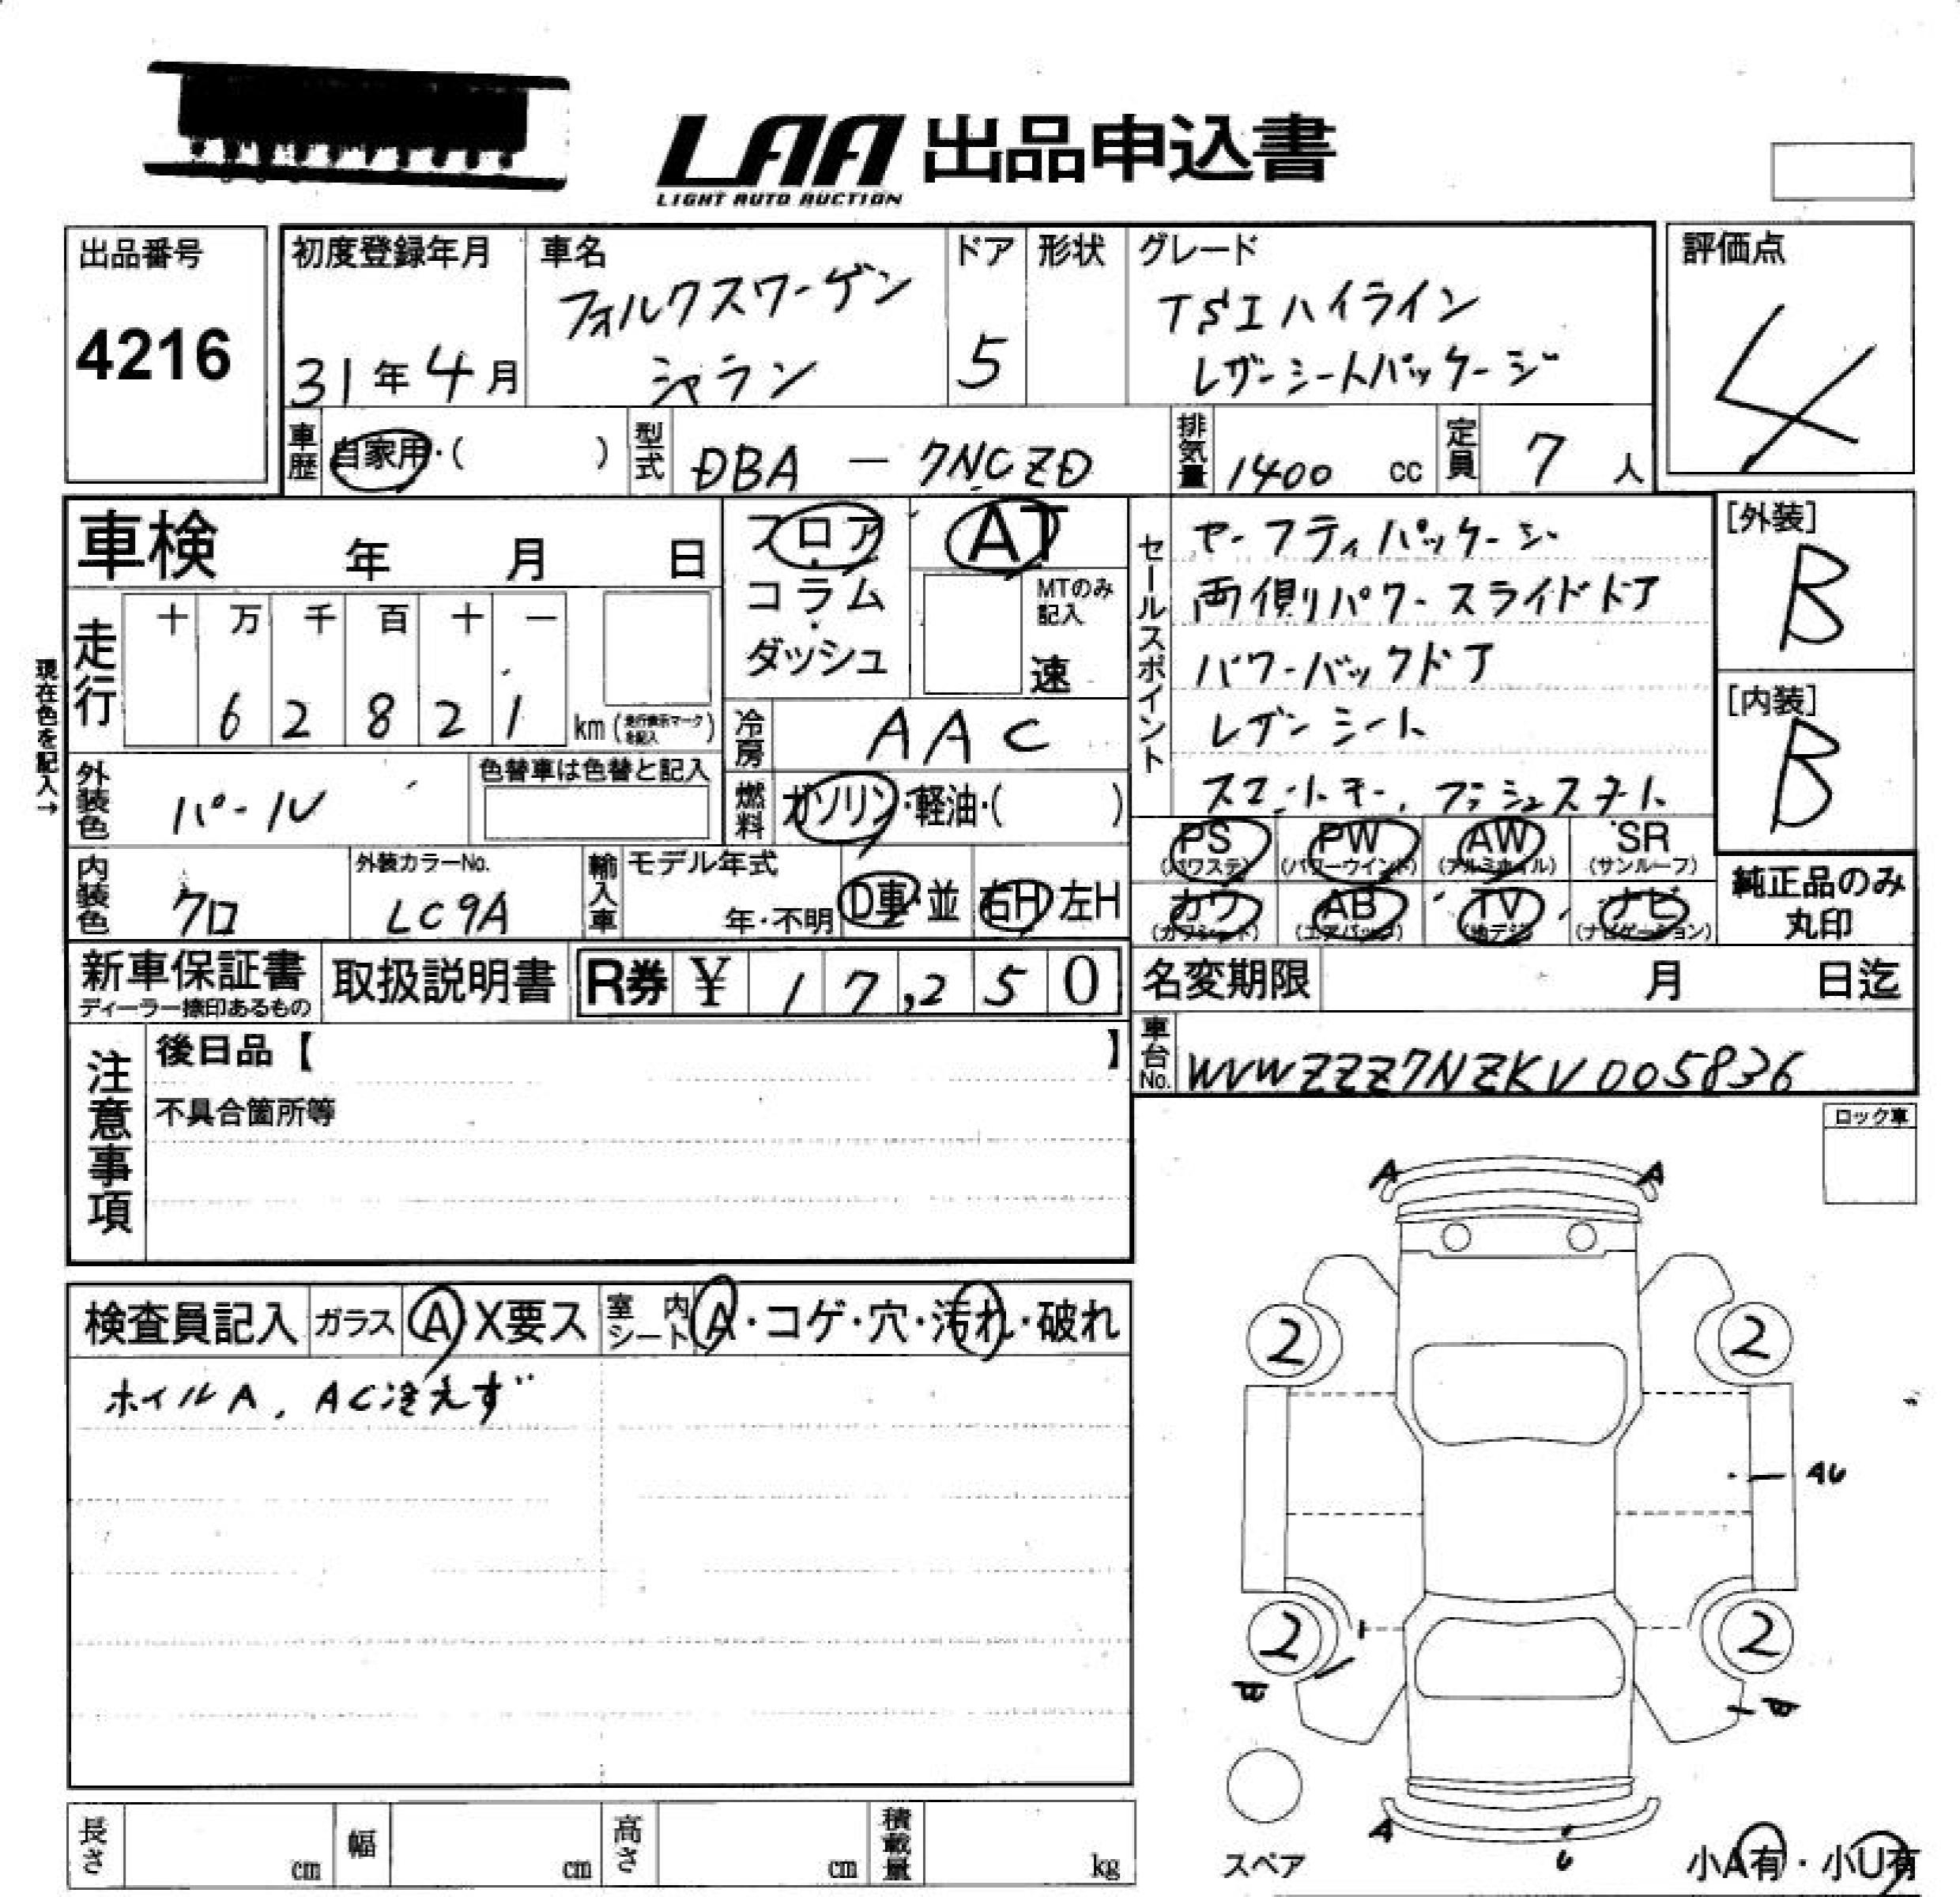 LAA 出品申込書
LIGHT AUTO AUCTION
出品番号
4216
初度登録年月
31年4月
車名
フォルクスワーゲン
シャラン
ドア
5
形状
グレード
TSIハイライン
レザーシートパッケージ
評価点
4
車歴
自家用・( )
型式
DBA - 7NCZD
排気量
1400 cc
定員
7 人
車検 年 月 日
フロア・コラム・ダッシュ
AT
MTのみ記入
速
セールスポイント
セーフティパッケージ
両側パワースライドドア
パワーバックドア
レザーシート
スマートキー、プッシュスタート
[外装]
B
[内装]
B
現在色を記入→
走行
十 万 千 百 十 一
6 2 8 2 1
km(走行表示マークを記入)
冷房
AAC
外装色
パール
色替車は色替と記入
燃料
ガソリン・軽油・( )
PS (パワステ)
PW (パワーウインド)
AW (アルミホイル)
SR (サンルーフ)
カワ (カワシート)
AB (エアバック)
TV (地デジ)
ナビ (ナビゲーション)
純正品のみ丸印
内装色
クロ
外装カラーNo.
LC9A
輸入車
モデル年式
年・不明
D車・並
右H 左H
新車保証書
ディーラー捺印あるもの
取扱説明書
R券 ¥ 17,250
名変期限 月 日迄
車台No.
WVWZZZ7NZKV005836
注意事項
後日品【 】
不具合箇所等
ロック車
検査員記入
ガラス A X要ス
室内シート A・コゲ・穴・汚れ・破れ
ホイルA, AC冷えず
A A
2 2
AU
2 2
B B
A U
スペア
小A有・小U有
長さ cm
幅 cm
高さ cm
積載量 kg